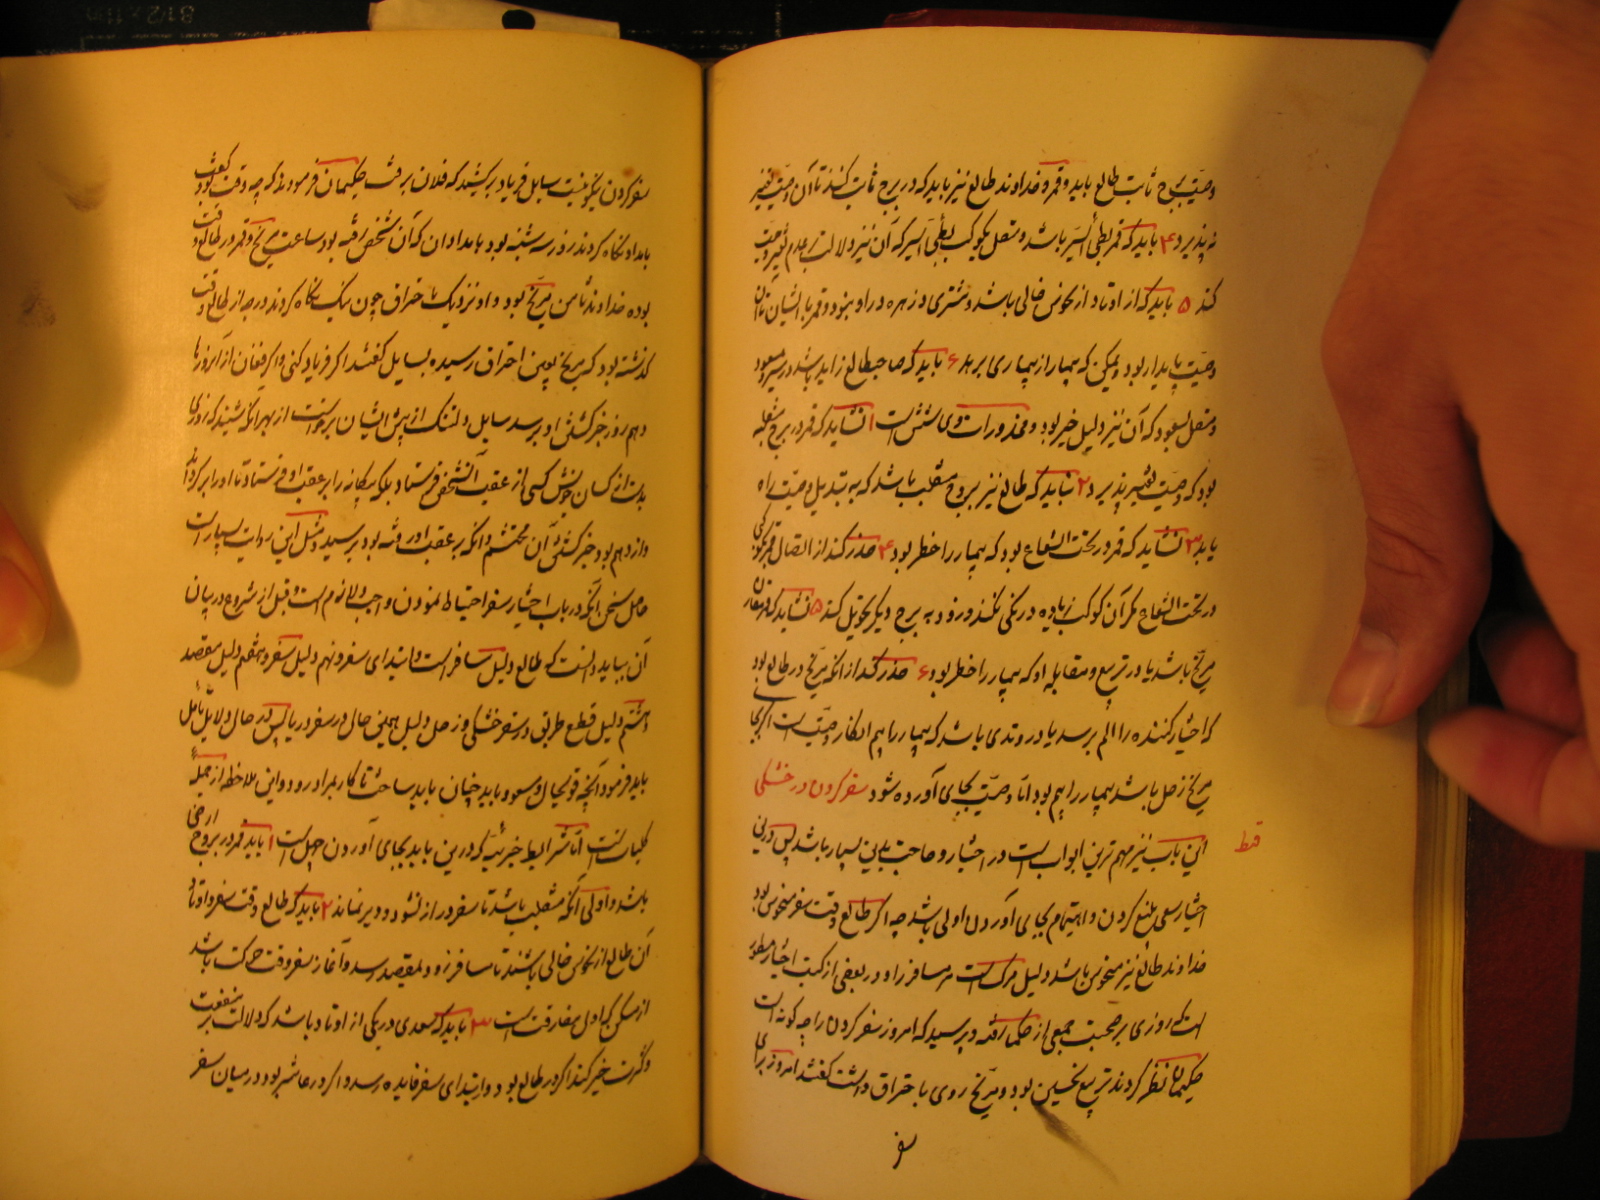 وصیت برج ثابت طالع باید و قمر و خداوند طالع نیز باید که در برج ثابت کنند تا آن وصیت تغییر
نه پذیرد ۴ باید که قمر بطی السیر باشد و متصل بکوکب بطی السیر که آن نیز دلالت بر عدم تغییر وصیت
کند ۵ باید که از اوتاد از نحوس خالی باشد و مشتری و زهره در او نبود و قمر با ایشان تا آن
وصیت پایدار بود و ممکن که بیمار از بیماری برهد ۶ باید که صاحب طالع زاید باشد در سیر و مسعود
و متصل بسعود که آن نیز دلیل خیر بود و محذورات وی شش است ۱ نشاید که قمر در برج منقلبه
بود که وصیت تغییر پذیرد ۲ نباید که طالع نیز بروج منقلب باشد که به تبدیل وصیت راه
یابد ۳ نشاید که قمر در تحت الشعاع بود که بیمار را خطر بود ۴ حذر کند از اتصال قمر بکوکبی
در تحت الشعاع مگر آن کوکب زیاده درنگی نکند و زود به برج دیگر تحویل کند ۵ نشاید که قمر مقارن
مریخ باشد یا در تربیع و مقابله او که بیمار را خطر بود ۶ حذر کند از آنکه مریخ در طالع بود
که اختیار کننده را الم برسد یا در وتدی باشد که بیمار را بیم انکار وصیت است اگر بجای
مریخ زحل باشد بیمار را بیم بود اما وصیت بجای آورده شود سفر کردن در خشکی
این باب نیز مهم ترین ابواب است در اختیار و حاجت بدین بسیار باشد پس درین
اختیار سعی بلیغ کردن و اهتمام بجای آوردن اولی باشد چه اگر طالع وقت سفر منحوس بود
خداوند طالع نیز منحوس باشد دلیل مرگ است مر مسافر را و در بعضی از کتب اختیار مسطور
است که روزی بر صحبت جمعی از حکما رفته و پرسید که امروز سفر کردن را چه گونه است
حکیمان نظر کردند تربیع نحسین بود و مریخ روی با حتراق داشت گفتند امروز برای
سفر
سفر کردن نیکو نیست سایل فریاد برکشید که فلان برفت حکیمان فرمودند که چه وقت گفت
بامداد نگاه کردند روز سه شنبه بود بامدادان که آن شخص رفته بود ساعت مریخ و قمر در طالع وقت
بوده خداوند ثامن مریخ بود و او نزدیک با حتراق چون نیک نگاه کردند درجه از طالع وقت
گذشته بود که مریخ بهمین احتراق رسیده بسایل گفتند اگر فریاد کنی و اگر فغان از امروز تا
دهم روز خبر کشتن او برسد سایل دلتنگ از پیش ایشان برخاست از بهر آنکه شنید که
کسان خویش کسی از عقب آن شخص فرستاد بلکه بیگانه را بر عقب او فرستاد تا او را برگرداند
دوازدهم بود خبر کشتن آن محتشم و آنکه بر عقب او رفته بود برسید و مثل این روایت بسیار است
حاصل سخن آنکه در باب اختیار سفر احتیاط نمودن واجب و لازم است و قبل از شروع در بیان
آن بباید دانست که طالع دلیل مسافر است و ابتدای سفر و نهم دلیل سفر و هفتم دلیل مقصد
هشتم دلیل قطع طریق در سفر خشکی و زحل دلیل همین حال در سفر دریا پس در حال دلایل تأمل
باید فرمود آنچه قویحال و مسعود باید چنان باید ساخت تا کار بمراد رود و این ملاحظه از جمله
کلیات است اما شرایط جزئیه که درین باید بجای آوردن چهل است ۱ باید قمر در بروج ارضی
باشد و اولی آنکه منقلب باشد تا سفر دراز نشود و دیر نماند ۲ باید که طالع وقت سفر و اوتاد
آن طالع از نحوس خالی باشند تا مسافر زود بمقصد رسد و آغاز سفر وقت حرکت باشد
از مسکن که اول مفارقت است ۳ باید که سعدی در یکی از اوتاد باشد که دلالت بر منفعت
و کثرت خیر کند اگر در طالع بود در ابتدای سفر فایده رسد و اگر در عاشر بود در میان سفر